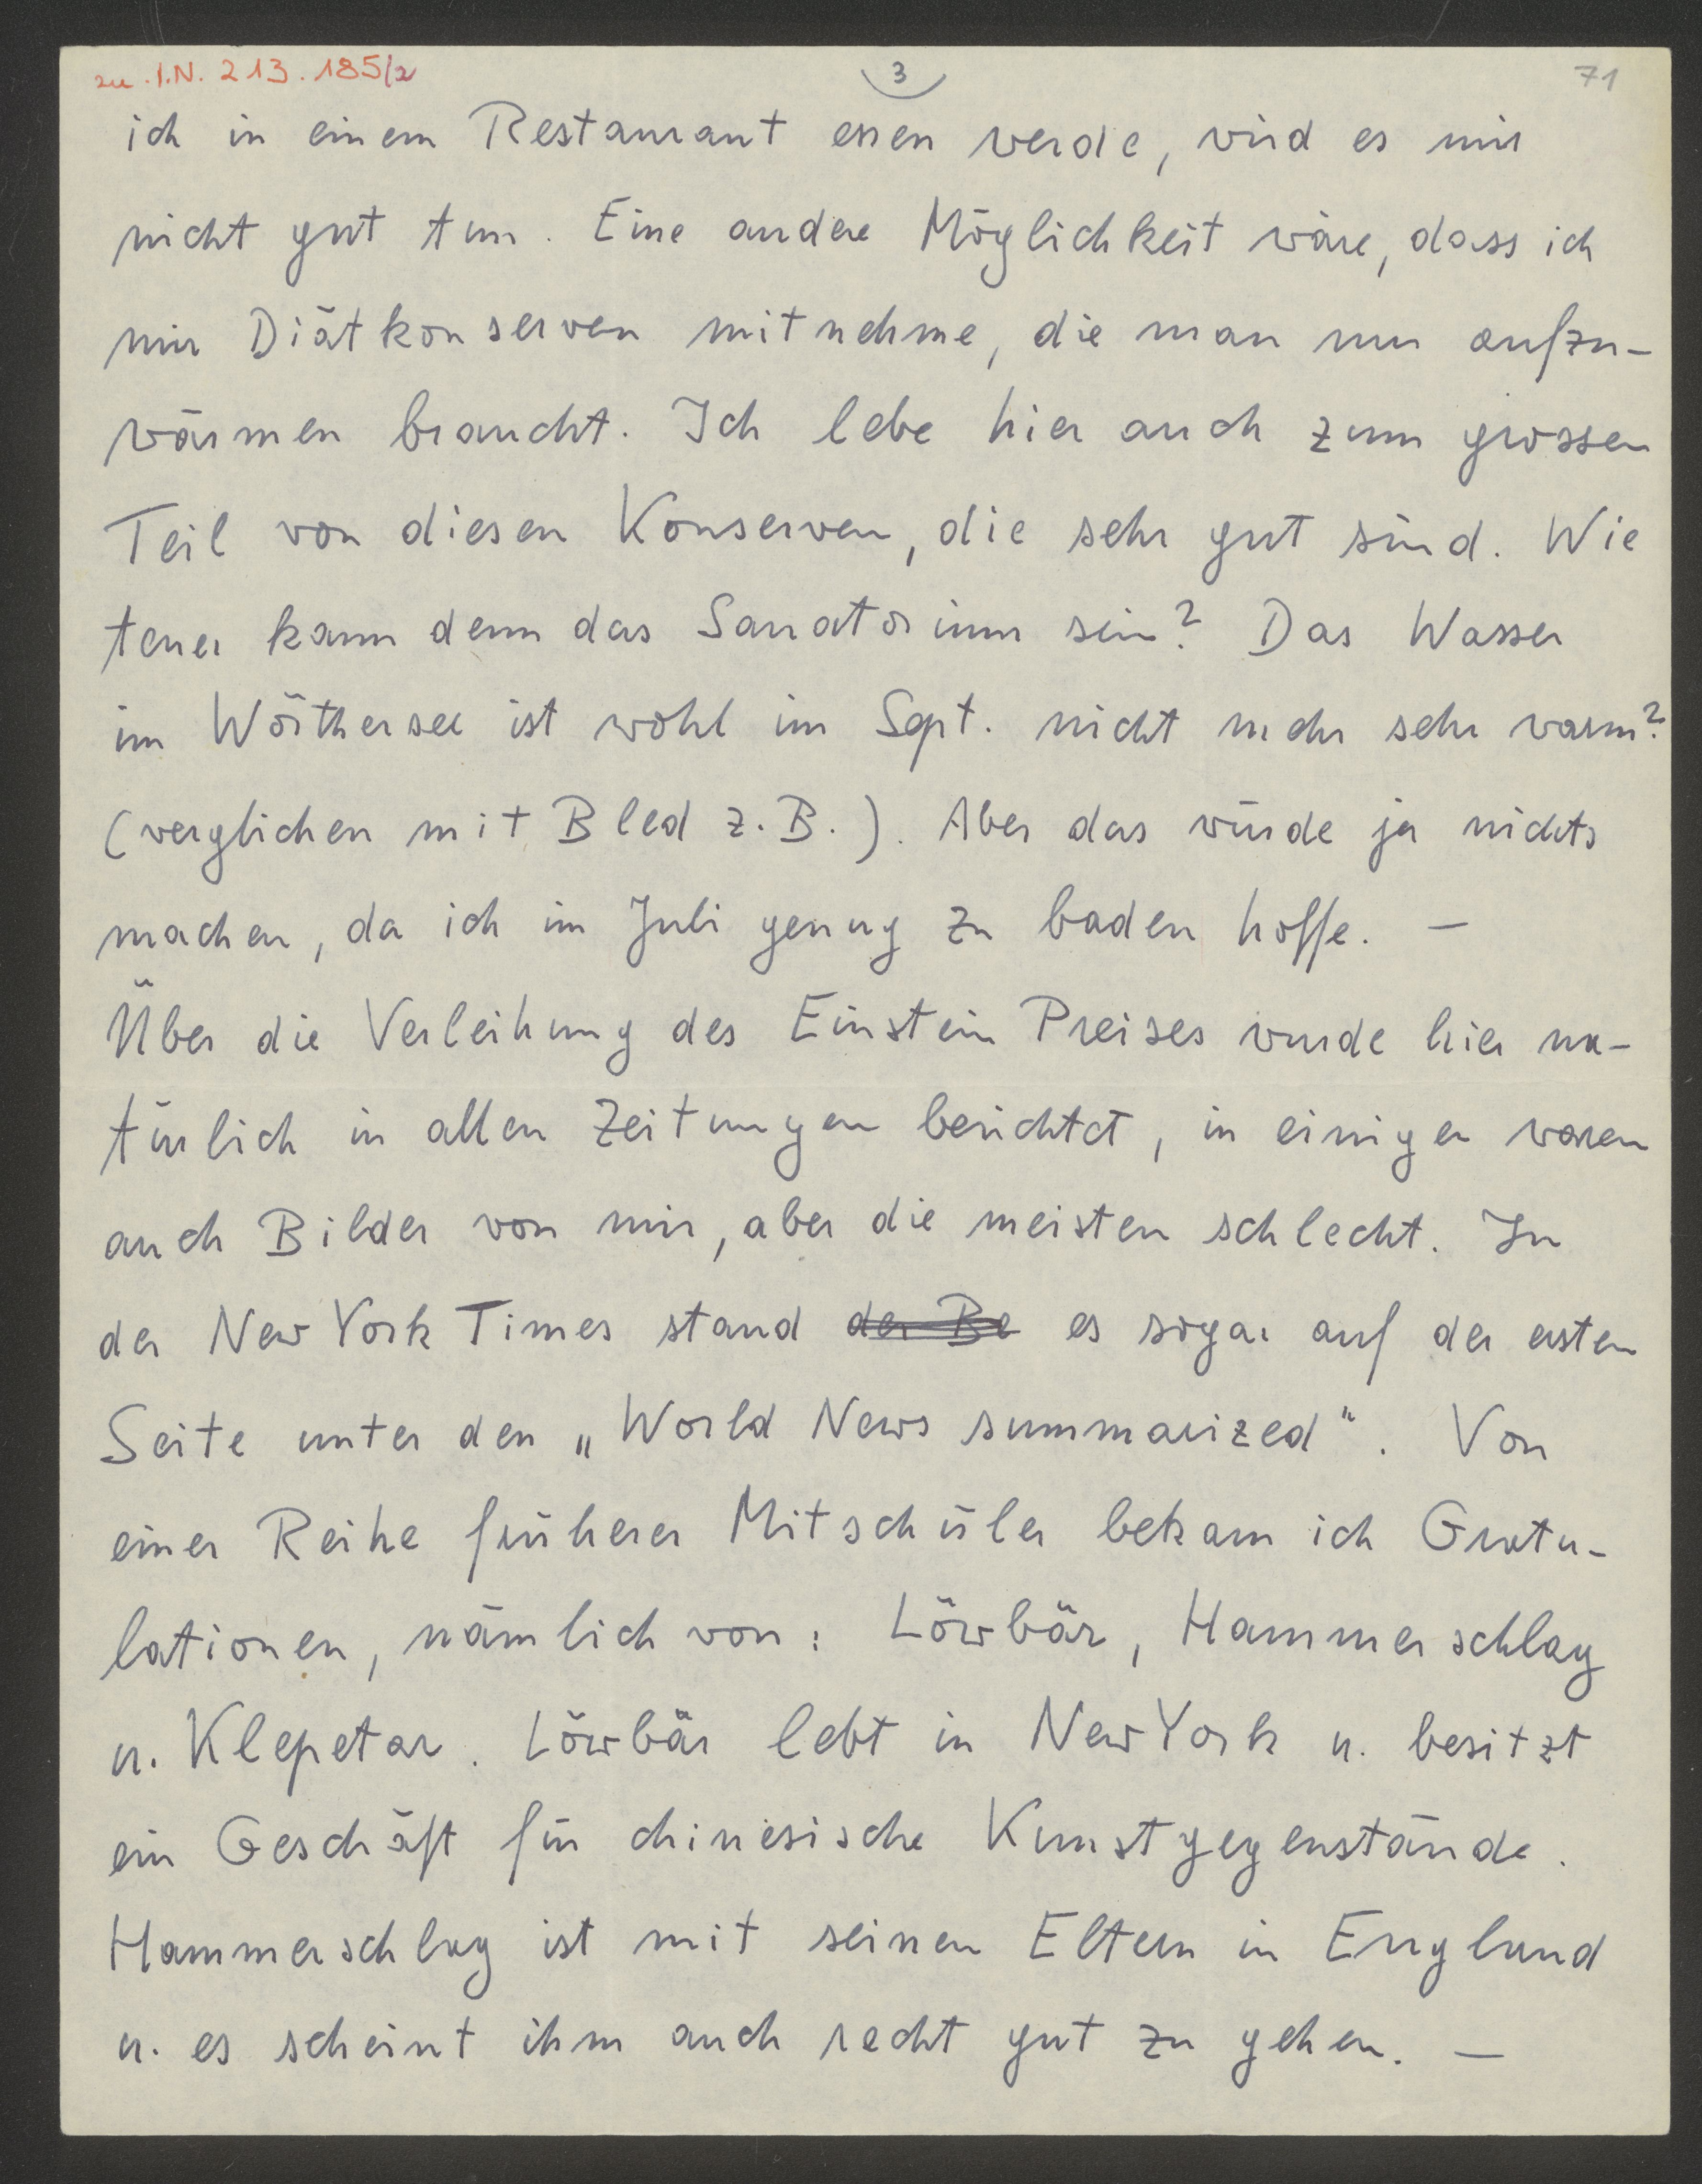 zu I.N. 213.185/2
3
71
ich in einem Restaurant essen werde, wird es mir
nicht gut tun. Eine andere Möglichkeit wäre, dass ich
mir Diätkonserven mitnehme, die man nur aufzu-
wärmen braucht. Ich lebe hier auch zum grossen
Teil von diesen Konserven, die sehr gut sind. Wie
teuer kann denn das Sanatorium sein? Das Wasser
im Wörthersee ist wohl im Sept. nicht mehr sehr warm?
(verglichen mit Bled z.B.). Aber das würde ja nichts
machen, da ich im Juli genug zu baden hoffe. —
Über die Verleihung des Einstein Preises wurde hier na-
türlich in allen Zeitungen berichtet, in einigen waren
auch Bilder von mir, aber die meisten schlecht. In
der New York Times stand der Be es sogar auf der ersten
Seite unter den „World News summarized". Von
einer Reihe früherer Mitschüler bekam ich Gratu-
lationen, nämlich von: Löwbär, Hammerschlag
u. Klepetar. Löwbär lebt in New York u. besitzt
ein Geschäft für chinesische Kunstgegenstände.
Hammerschlag ist mit seinen Eltern in England
u. es scheint ihm auch recht gut zu gehen. —